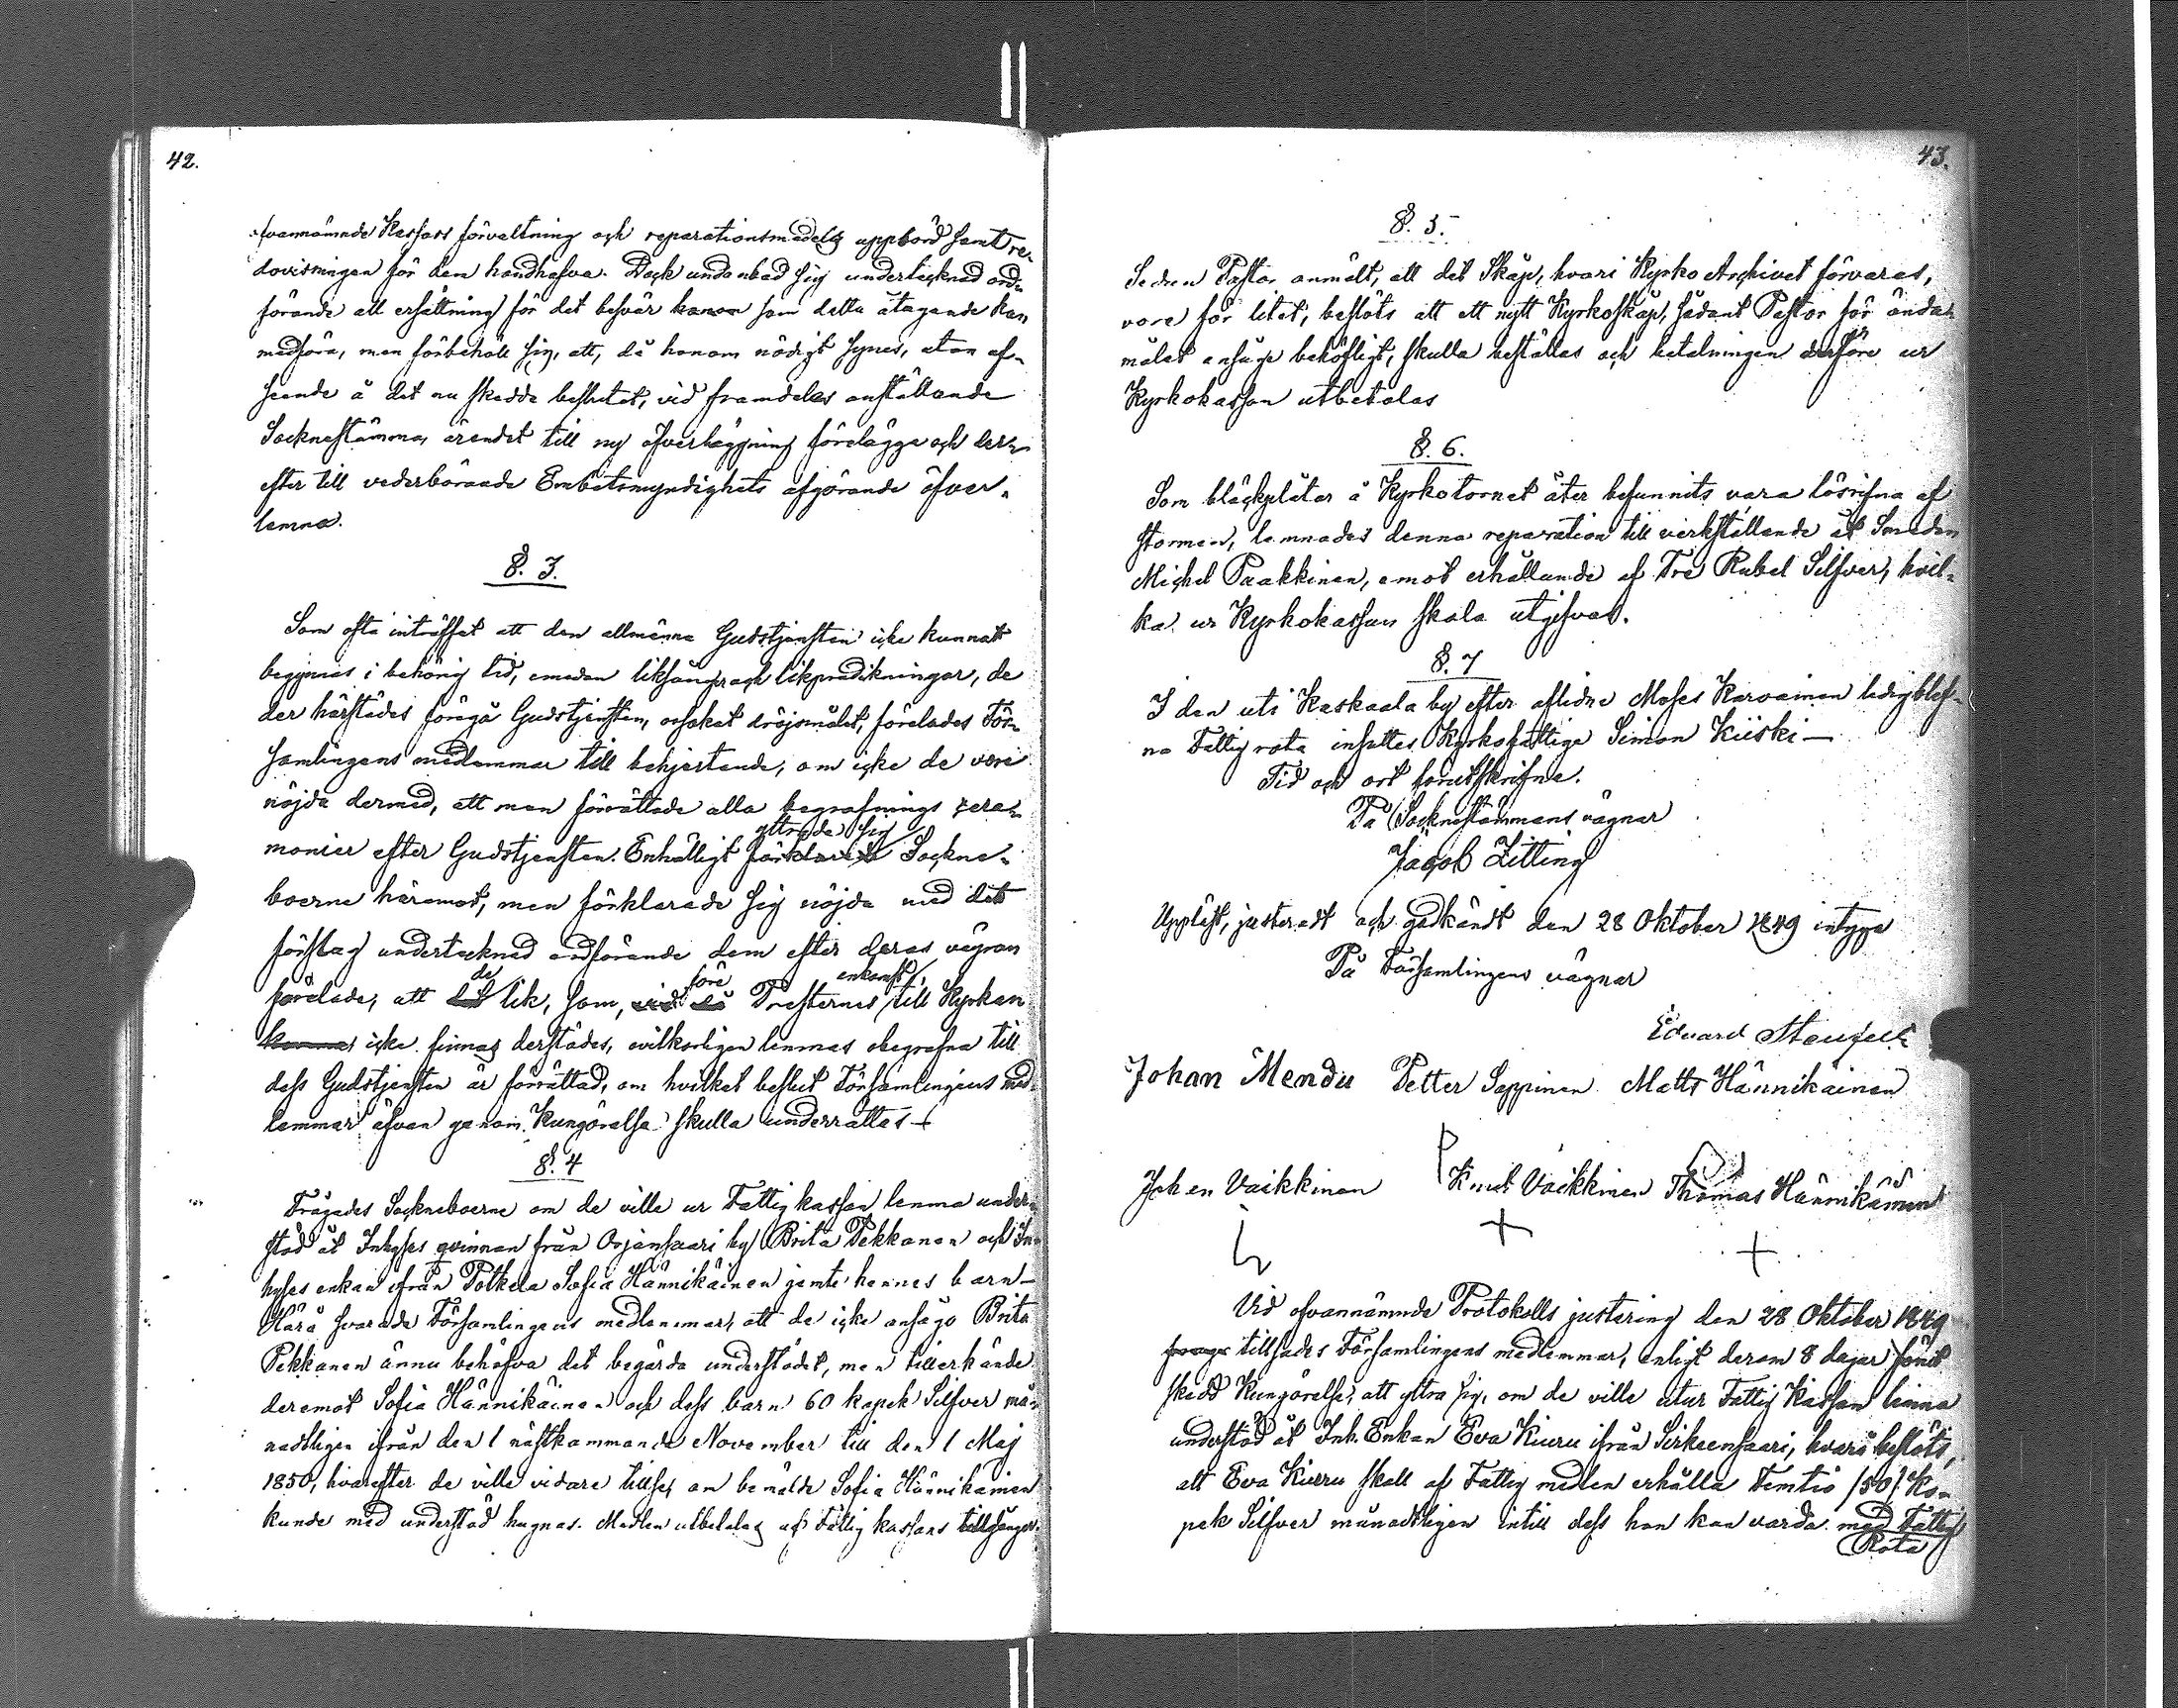 42.
ofvannämnde Kassors förvaltning och reparationsmedels uppbörd samt re-
dovisningen för dem handhafva. Dock undanbad sig undertecknad ord-
förande all ersättning för det besvär honom som detta åtagande kan
medföra, men förbehöll sig, att, då honom nödigt synes, utan af-
seende å det nu skedda beslutet, vid framdeles anställande
Sockneståmma, ärendet till ny öfverläggning förelägga och der-
efter till vederbörande Embetsmyndighets afgörande öfver-
lemna.
§. 3.
Som ofta inträffat att den allmänna Gudstjensten icke kunnat
begynnas i behörig tid, emedan liksånger och likpredikningar, de
der härstädes föregå Gudstjensten, orsakat dröjsmålet, förelades För-
samlingens medlemmar till behjertande, om icke de vore
nöjda dermed, att man förrättade alla begrafnings cere-
monier efter Gudstjensten. Enhälligt förklarade yttrade sig Sockne-
boerne häremot, men förklarade sig nöjda med det
förslag undertecknad ordförande dem efter deras vägran
förelade, att de lik, som, vid då före Presternes ankomst till Kyrkan
kommer icke finnas derstädes, ovilkorligen lemnas obegrafna till
dess Gudstjensten är förrättad, om hvilket beslut Församlingens med-
lemmar äfven genom Kungörelse skulle underrättas
§. 4
Frågades Sockneboerne om de ville ur Fattigkassan lemna under-
stöd åt Inhyses qvinnan från Orjansaari by Brita Pekkanen och In-
hyses enkan ifrån Potkela Sofia Hännikäinen jemte hennes barn –
Härå svarade Församlingens medlemmar, att de icke ansågo Brita
Pekkanen ännu behöfva det begärda understödet, men tillerkände
deremot Sofia Hännikäinen och dess barn 60 kopek Silfver må-
nadtligen ifrån den 1 nästkommande November till den 1 Maj
1850, hvarefter de ville vidare tillse, om bemälde Sofia Hännikäinen
kunde med understöd hugnas. Medlen utbetalas af Fattigkassans tillgångar.
43.
§. 5.
Sedan Pastor anmält, att det Skåp, hvari Kyrko Archivet förvaras,
vore för litet, beslöts att ett nytt Kyrkoskåp, sådant Pastor för ända-
målet ansåge behöfligt, skulle beställas och betalningen derföre ur
Kyrkokassan utbetalas
§. 6.
Som bläckplåtar å Kyrkotornet åter befunnits vara lösrifna af
stormen, lemnades denna reparation till verkställande åt Smeden
Michel Paakkinen, emot erhållande af Tre Rubel Silfver, hvil-
ka ur Kyrkokassan skola utgifvas.
§. 7
I den uti Kaskaala by efter aflidne Moses Karvainen ledigblef-
na Fattig rota insattes Kyrkofattige Simon Kiiski –
Tid och ort förutskrifne.
På Sockneståmmans vägnar
Jacob Zitting
Uppläst, justeradt och godkändt den 28 Oktober 1849 intyga
På Församlingens vägnar
Eduard
Johan Mendu Petter Sappinen Matts Hännikäinen
Johan Vaikkinen Knut Vaikkinen Thomas Hännikäinen
Vid ofvannämnde Protokolls justering den 28 Oktober 1849
tillsades Församlingens medlemmar, enligt derom 8 dagar förut
skedd Kungörelse, att yttra sig, om de ville utur Fattig Kassan lemna
understöd åt Inh. Enkan Eva Kiuru ifrån Sirkeensaari, hvarå beslöts,
att Eva Kiuru skall af Fattig medlen erhålla Femtio /50/ Ko-
pek Silfver månadtligen intill dess hon kan varda med Fattig
Rota